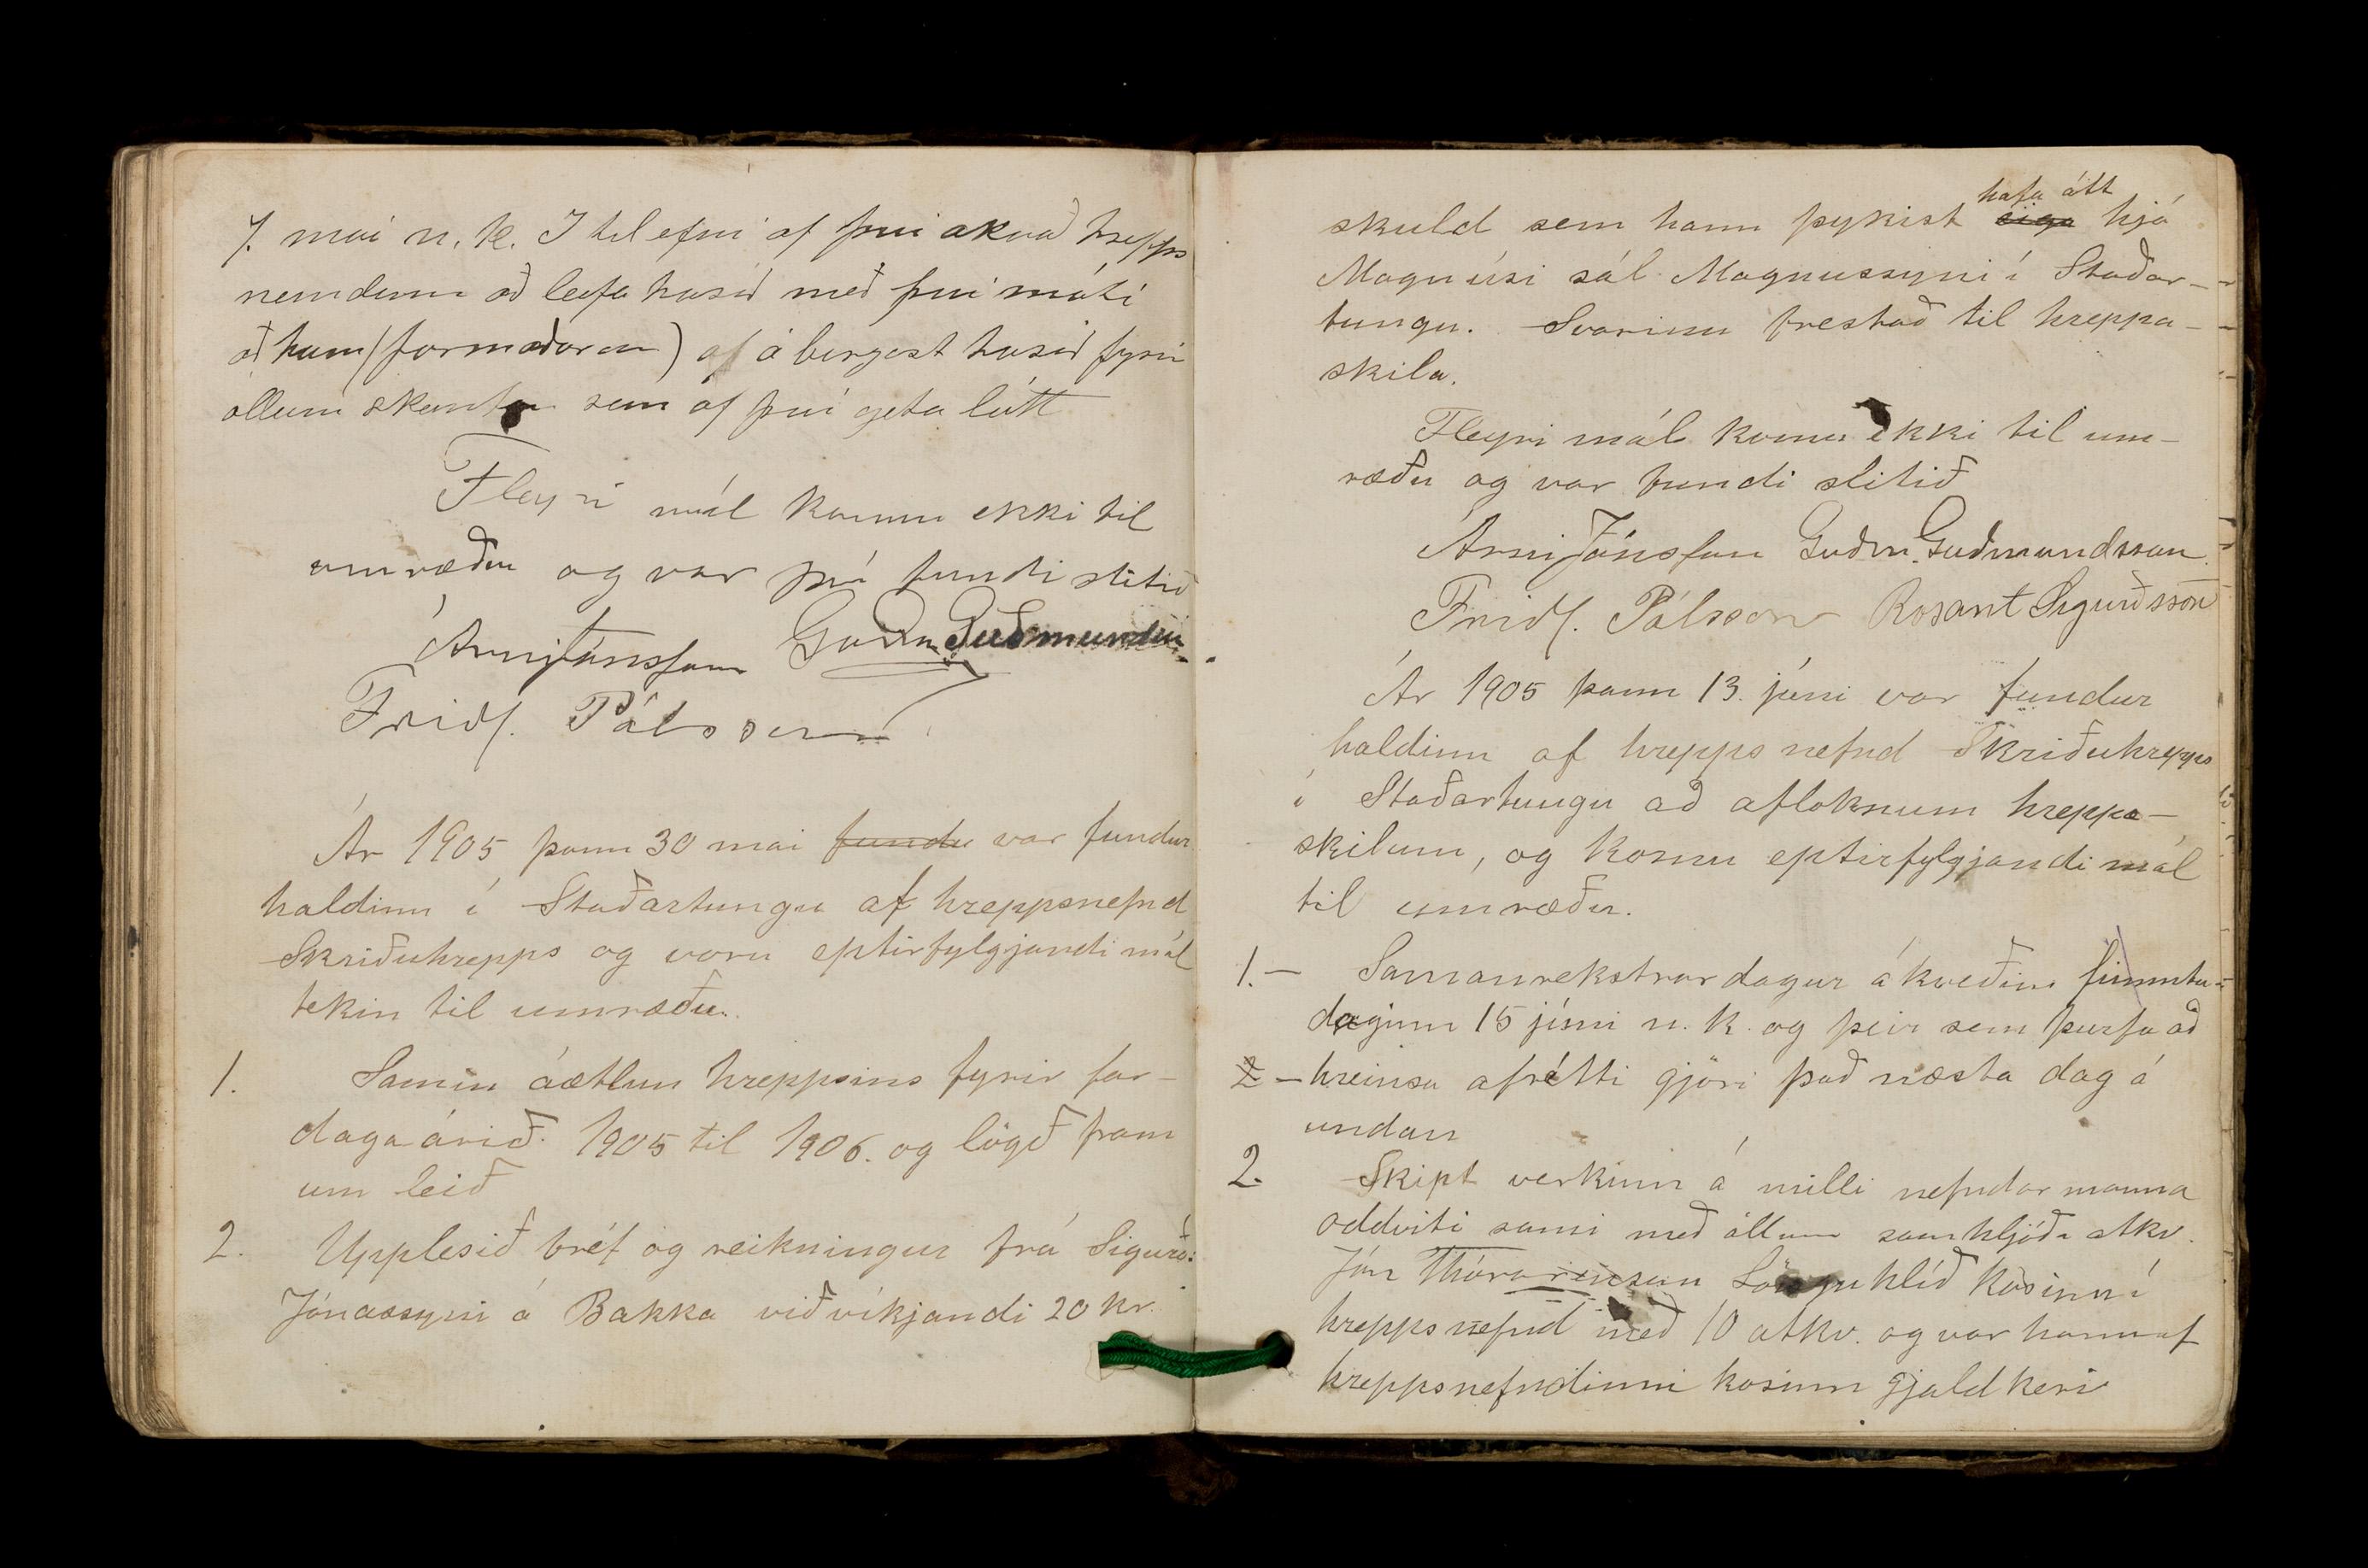 7. mai n. k. I tilefni af því akvað hrepps
nemdinn að leifa husið með því máti
að hum (formaðoren) af ábergast husið fyrir
öllum skemtu sem af því geta lútt
Fleyri mál komu ekki til
umræðu og var því fundi slitið
Árni Jónsson Guðm. Guðmundsson
Friðf. Pálsson
Ár 1905 þann 30 mai fundu var fundur
haldinn í Staðartungu af hreppsnefnd
Skriðuhrepps og voru eptirfylgjandi mál
tekin til umræðu.
1. Samin áætlun hreppsins fyrir far-
daga árið 1905 til 1906. og lögð fram
um leið
2. Upplesið bréf og reikningur frá Sigurð:
Jónassyni á Bakka viðvíkjandi 20 kr.
skuld sem hann þykist eiga hafa átt hjá
Magnúsi sál Magnussyni í Staðar-
tungu. Svarinu frestað til hreppa-
skila.
Fleyri mál komu ekki til um-
ræðu og var fundi slitið
Árni Jónsson Guðm. Guðmundsson
Friðf. Pálsson Rosant Sigurðsson
Ár 1905 þann 13. júni var fundur
haldinn af hreppsnefnd Skriðuhrepps
í Staðartungu að afloknum hreppa-
skilum, og komu eptirfylgjandi mál
til umræðu.
1.- Samanrekstrardagur ákveðinn fimmtu-
daginn 15 júni n. k. og þeir sem þurfa að
2 - hreinsa afrétti gjöri það næsta dag á
undan
2. Skipt verkinn á milli nefndar manna
oddviti sami með öllum samhljóða atkv.
Jón Thórarinsson Lönguhlíð kosinn í
hreppsnefnd með 10 atkv. og var hann af
hreppsnefndinni kosinn gjaldkeri